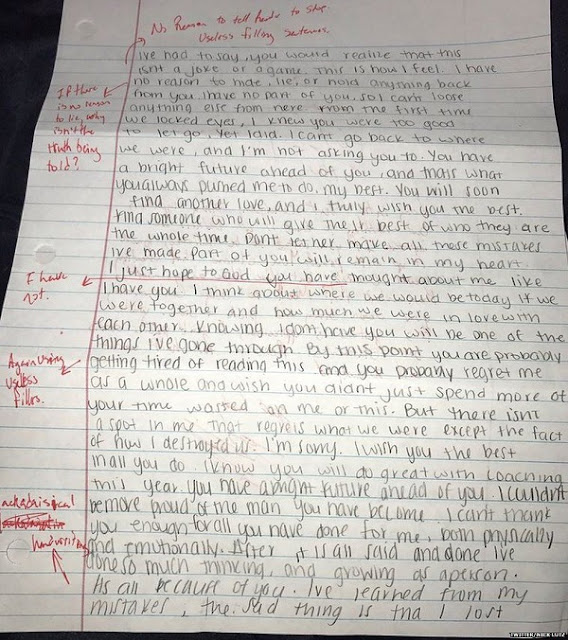 No Reason to tell reader to stop.
Useless filling sentences.
ive had to say, you would realize that this
isnt a joke or a game. This is how I feel. I have
no reason to hide, lie, or hold anything back
from you. I have no part of you, so I cant loose
anything else from here. From the first time
we locked eyes, I knew you were too good
to let go, yet I did. I cant go back to where
we were, and I'm not asking you to. You have
a bright future ahead of you, and thats what
you always pushed me to do, my best. You will soon
find another love, and I truly wish you the best.
Find someone who will give the best of who they are
the whole time. Dont let her make all those mistakes
ive made. Part of you will remain in my heart.
I just hope to God you have thought about me like
I have you. I think about where we would be today if we
were together and how much we were in love with
each other. Knowing I dont have you will be one of the
things I've gone through. By this point you are probably
getting tired of reading this and you probably regret me
as a whole and wish you didnt just spend more of
your time wasted on me or this. But there isnt
a spot in me that regrets what we were except the fact
of how I destroyed us. I'm sorry. I wish you the best
in all you do. I know you will do great with coaching
this year. You have a bright future ahead of you. I couldn't
be more proud of the man you have become. I cant thank
you enough for all you have done for me, both physically
and emotionally. After it is all said and done ive
done so much thinking, and growing as a person.
Its all because of you. I've learned from my
mistakes, the sad thing is tha I lost
If there
is no reason
to lie, why
isn't the
truth being
told?
I have
not.
Again using
useless
fillers.
handwriting
TWITTER/NICK LUTZ